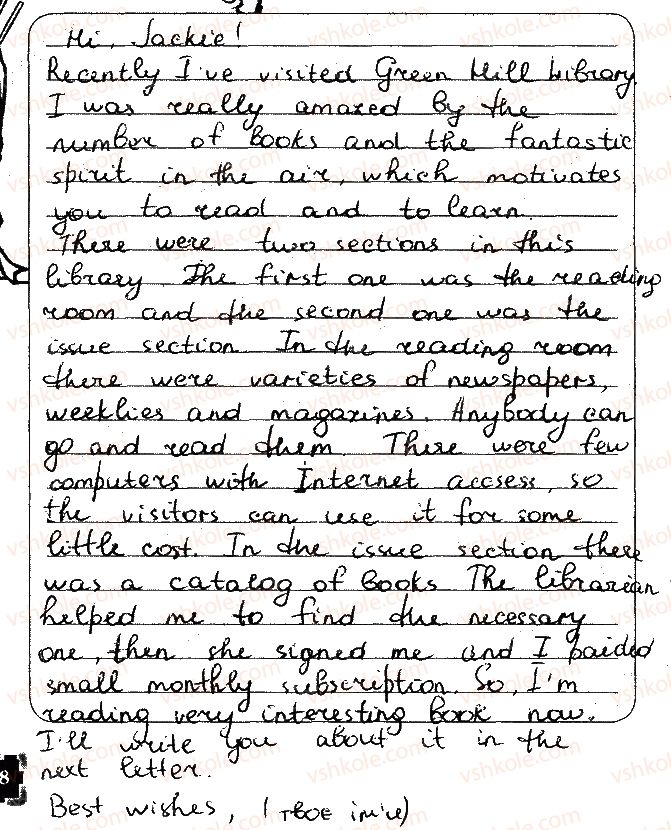 Hi, Jackie!
Recently I've visited Green Hill Library.
I was really amazed by the
number of books and the fantastic
spirit in the air, which motivates
you to read and to learn.
There were two sections in this
library. The first one was the reading
room and the second one was the
issue section. In the reading room
there were varieties of newspapers,
weeklies and magazines. Anybody can
go and read them. There were few
computers with Internet accsess, so
the visitors can use it for some
little cost. In the issue section there
was a catalog of books. The librarian
helped me to find the necessary
one, then she signed me and I paided
small monthly subscription. So, I'm
reading very interesting book now.
I'll write you about it in the
8 next letter.
Best wishes, (твоє ім'я)